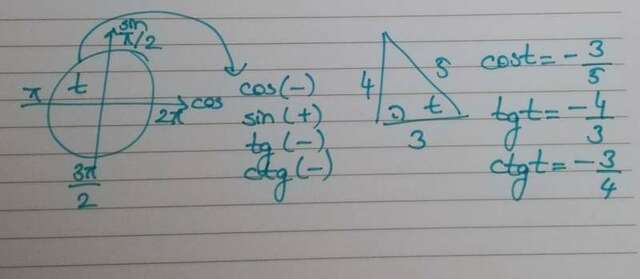 sin
π/2
t
π
cos
2π
3π/2
cos(-)
sin(+)
tg(-)
ctg(-)
4
5
t
3
cost = -3/5
tgt = -4/3
ctgt = -3/4